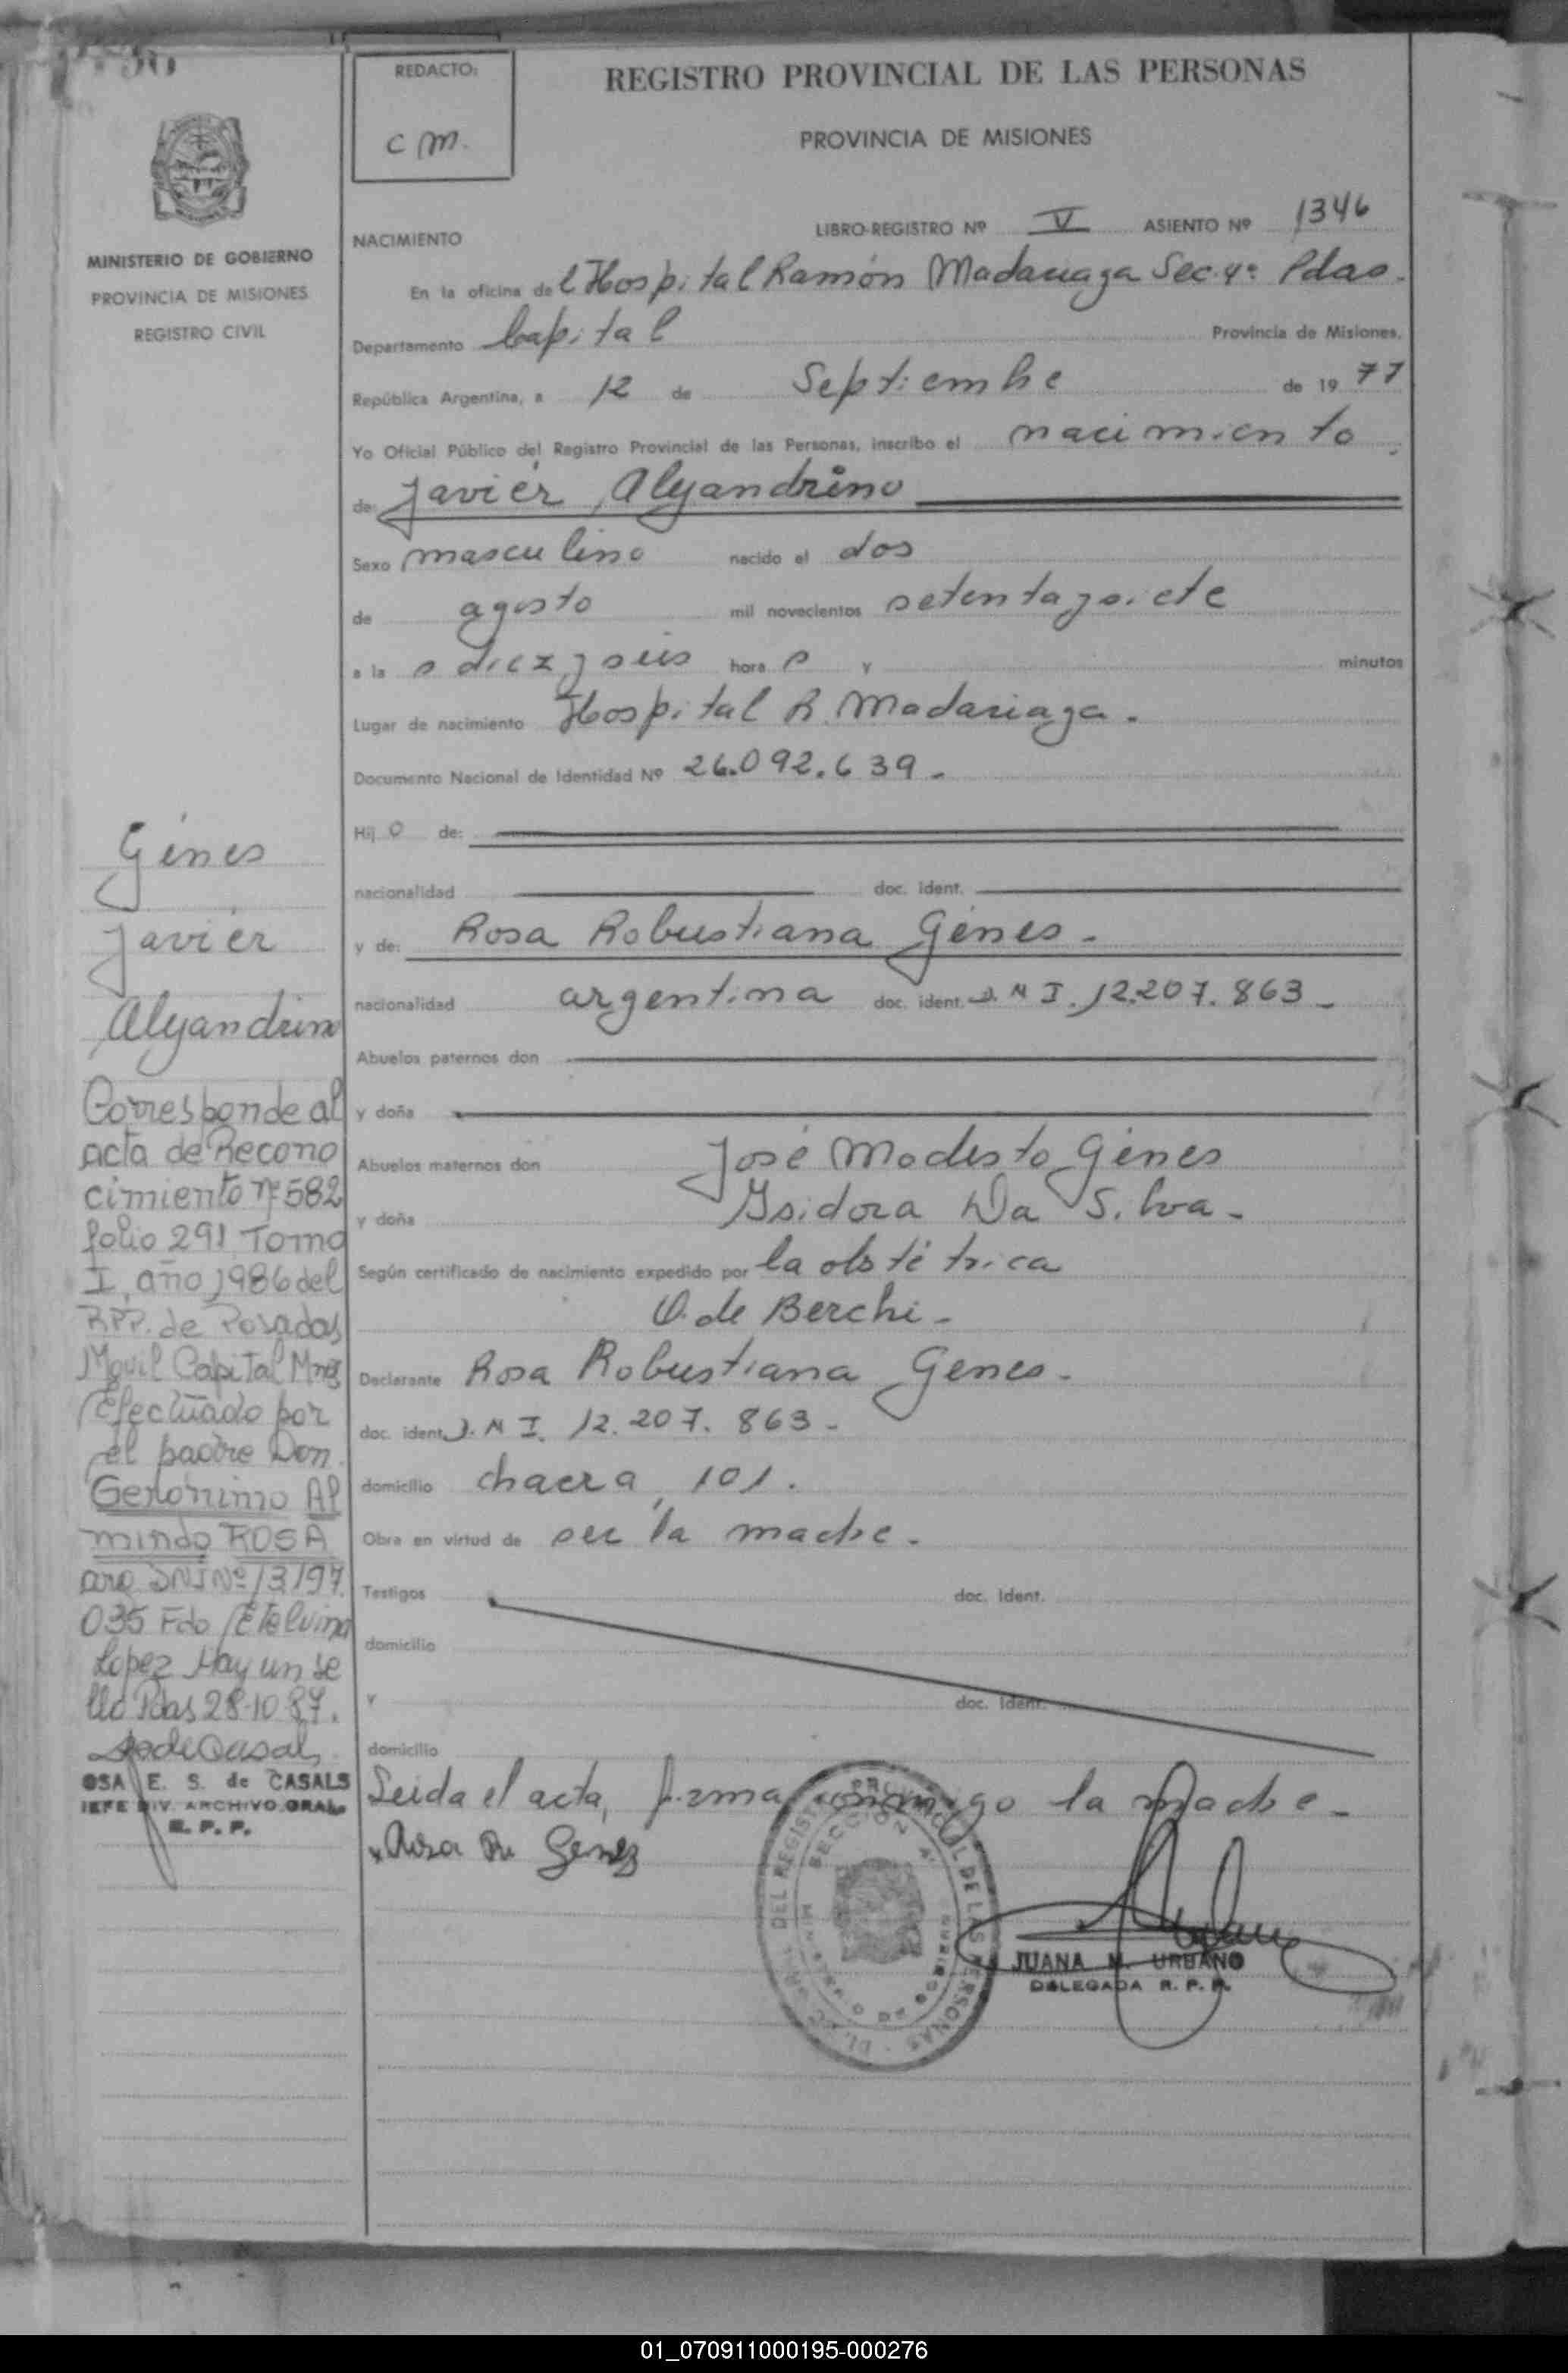 REDACTO:
C M.
REGISTRO PROVINCIAL DE LAS PERSONAS
PROVINCIA DE MISIONES
MINISTERIO DE GOBIERNO
PROVINCIA DE MISIONES
REGISTRO CIVIL
LIBRO-REGISTRO Nº V ASIENTO Nº 1346
NACIMIENTO
En la oficina del Hospital Ramón Madariaga Sec. 4ª Pdas.
Departamento Capital Provincia de Misiones.
República Argentina, a 12 de Septiembre de 19 77
Yo Oficial Público del Registro Provincial de las Personas, inscribo el nacimiento
de: Javier Alejandrino
Sexo masculino nacido el dos
de agosto mil novecientos setentaysiete
a la s diez y seis hora s y minutos
Lugar de nacimiento Hospital R. Madariaga.
Documento Nacional de Identidad Nº 26.092.639.
Hij o de:
nacionalidad doc. ident.
y de: Rosa Robustiana Génes.
nacionalidad argentina doc. ident. D.N.I. 12.207.863
Abuelos paternos don
y doña
Abuelos maternos don José Modesto Génes
y doña Ysidora Da Silva
Según certificado de nacimiento expedido por la obstétrica
O. de Berchi
Declarante Rosa Robustiana Genes.
doc. ident. D.N.I. 12.207.863
domicilio chacra 101.
Obra en virtud de ser la madre.
Testigos doc. ident.
domicilio
y doc. ident.
domicilio
Leida el acta, firma conmigo la Madre
Rosa R. Genez
JUANA M. URBANO
DELEGADA R. P. P.
Génes
Javier
Alejandrino
Corresponde al
acta de Recono
cimiento Nº 582
folio 291 Tomo
I, año 1986 del
RPP. de Posadas
Movil Capital Mnes
Efectuado por
el padre Don
Geronimo Al
mindo ROSA
arg DNI Nº 13197.
035 Fdo Etelvina
Lopez Hay un se
llo Pdas 28-10-87.
OSA E. S. de CASALS
JEFE DIV. ARCHIVO GRAL.
R. P. P.
01_070911000195-000276